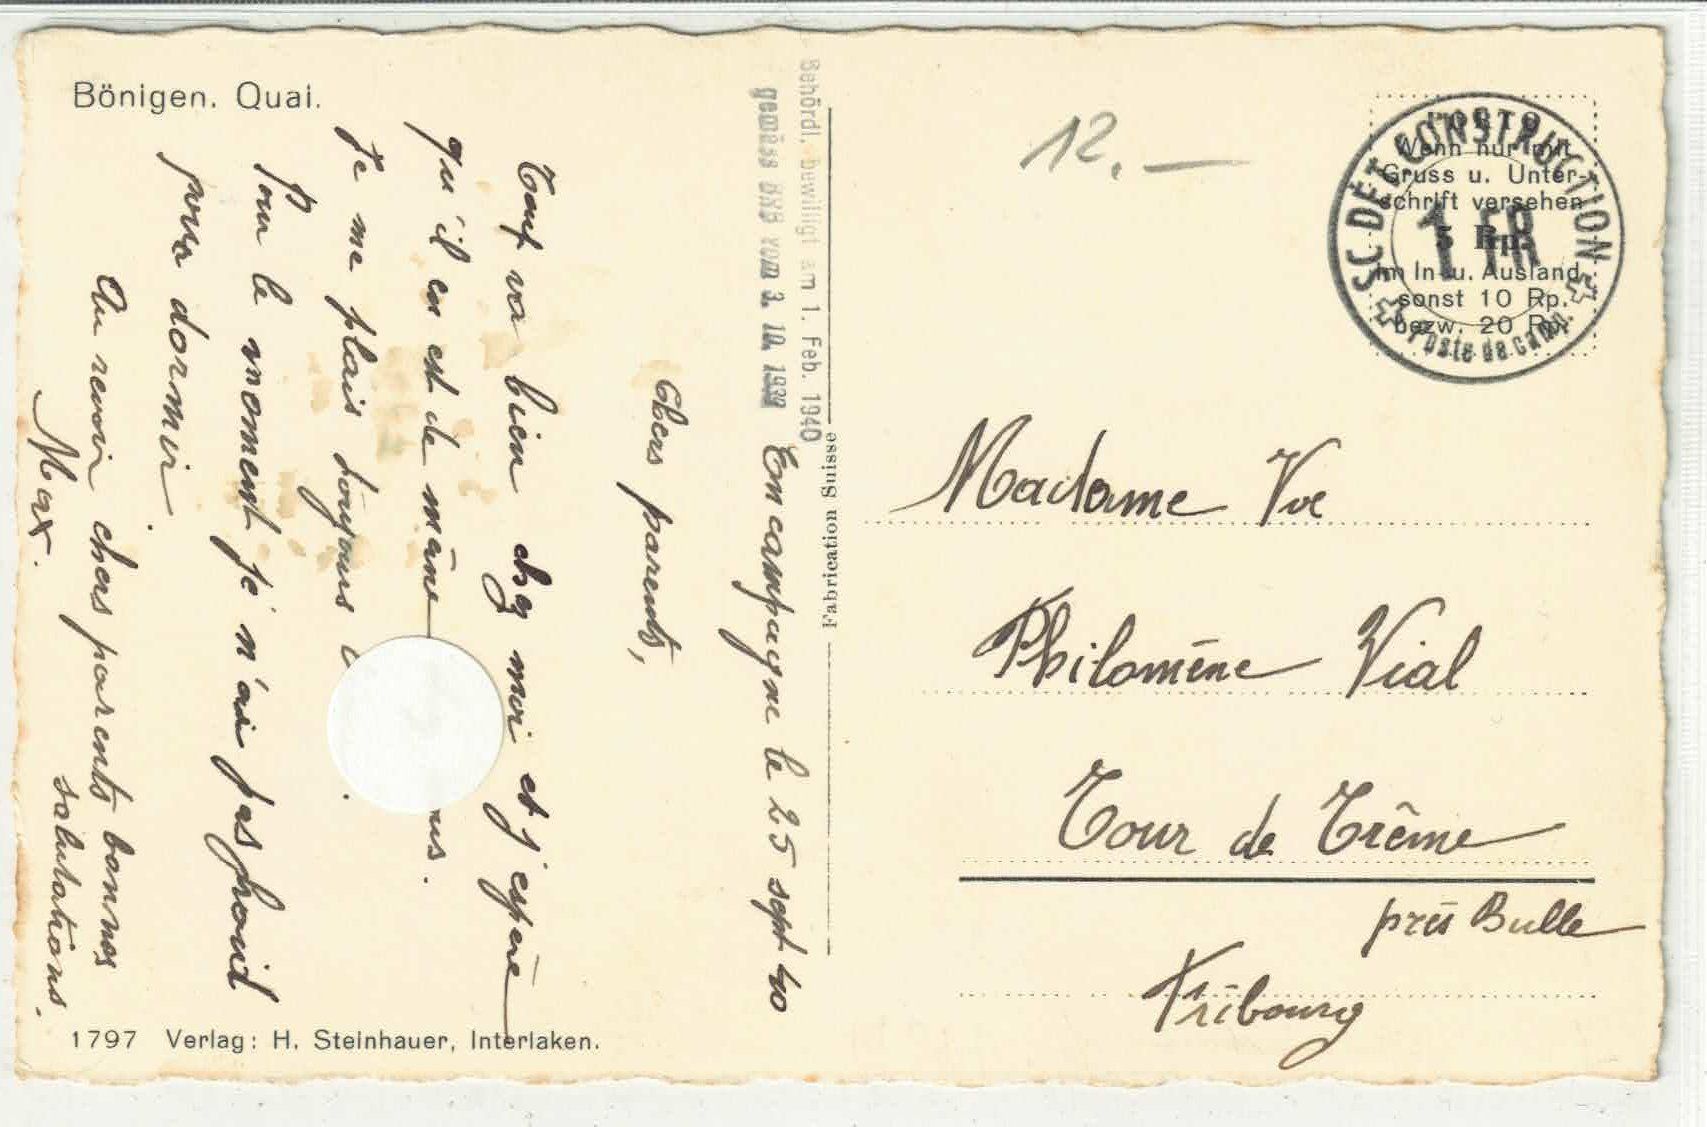 Bönigen. Quai.
Behördl. bewilligt am 1. Feb. 1940
gemäss BKB vom 3. 10. 1939
En campagne le 25 sept 40
Chers parents,
Tout va bien chez moi et j'espère
qu'il en est de même
Je me plais toujours
Pour le moment je n'ai pas froid
pour dormir.
Au revoir chers parents bonnes
salutations.
Max.
1797 Verlag: H. Steinhauer, Interlaken.
Fabrication Suisse
12.—
PORTO
Wenn nur mit
Gruss u. Unter-
schrift versehen
5 Rp.
im In- u. Ausland
sonst 10 Rp.
bezw. 20 Rp.
SC DET CONSTRUCTION
1 FR
Poste de camp.
Madame Vve
Philomène Vial
Tour de Trême
près Bulle
Fribourg